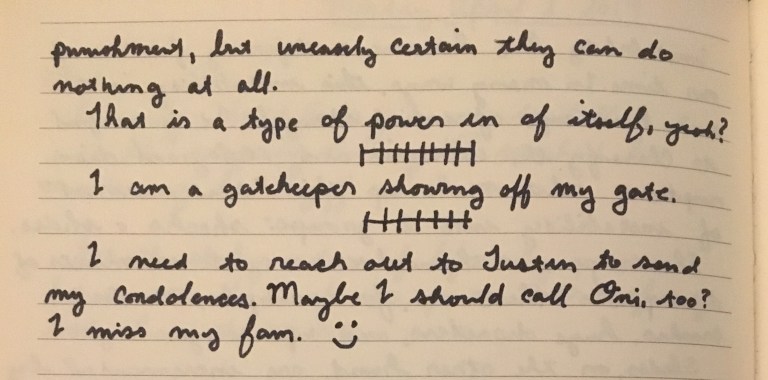 punishment, but uneasely certain they can do
nothing at all.
That is a type of power in of itself, yeah?
I am a gatekeeper showing off my gate.
I need to reach out to Justin to send
my condolences. Maybe I should call Omi, too?
I miss my fam. :)